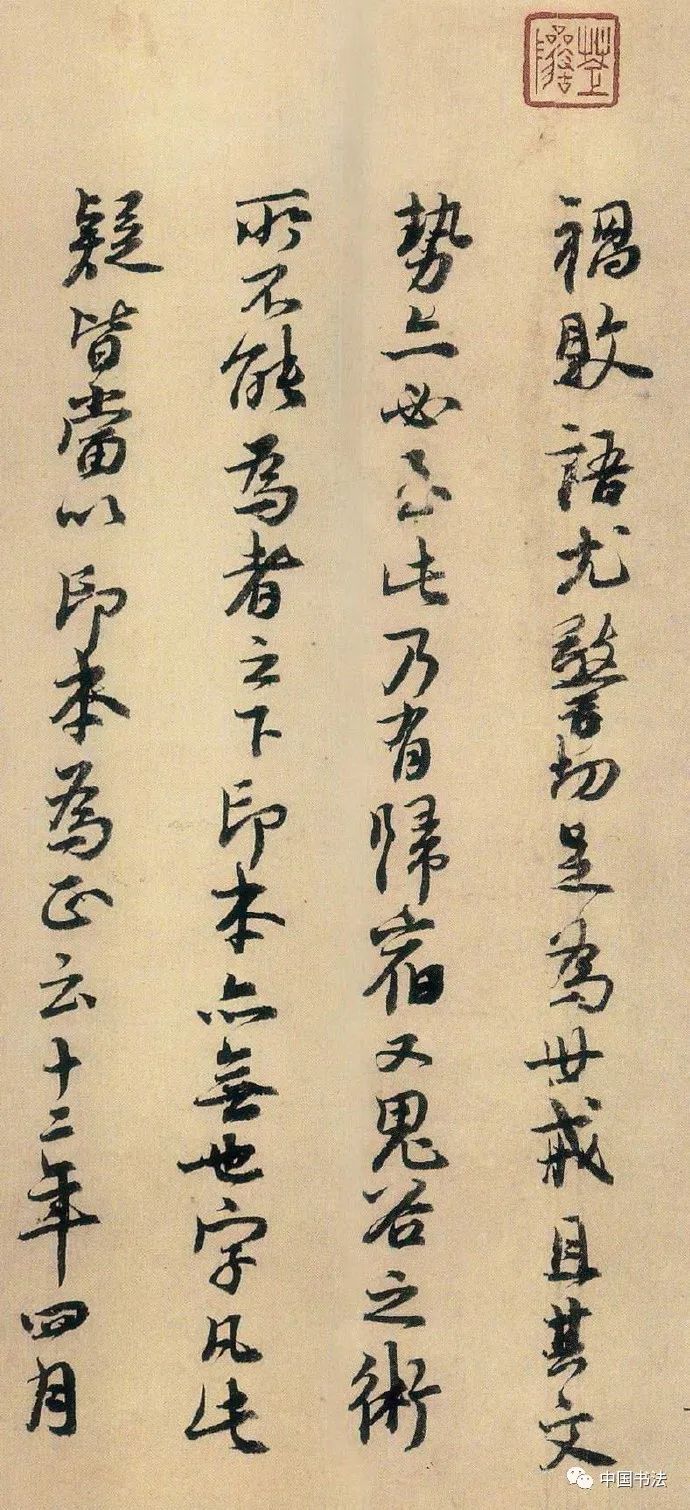 禍敗語尤警切足為世戒且其文
勢亦必至此乃有歸宿又鬼谷之術
所不能為者之下印本亦無也字凡此
疑皆當以印本為正云十二年四月
中国书法